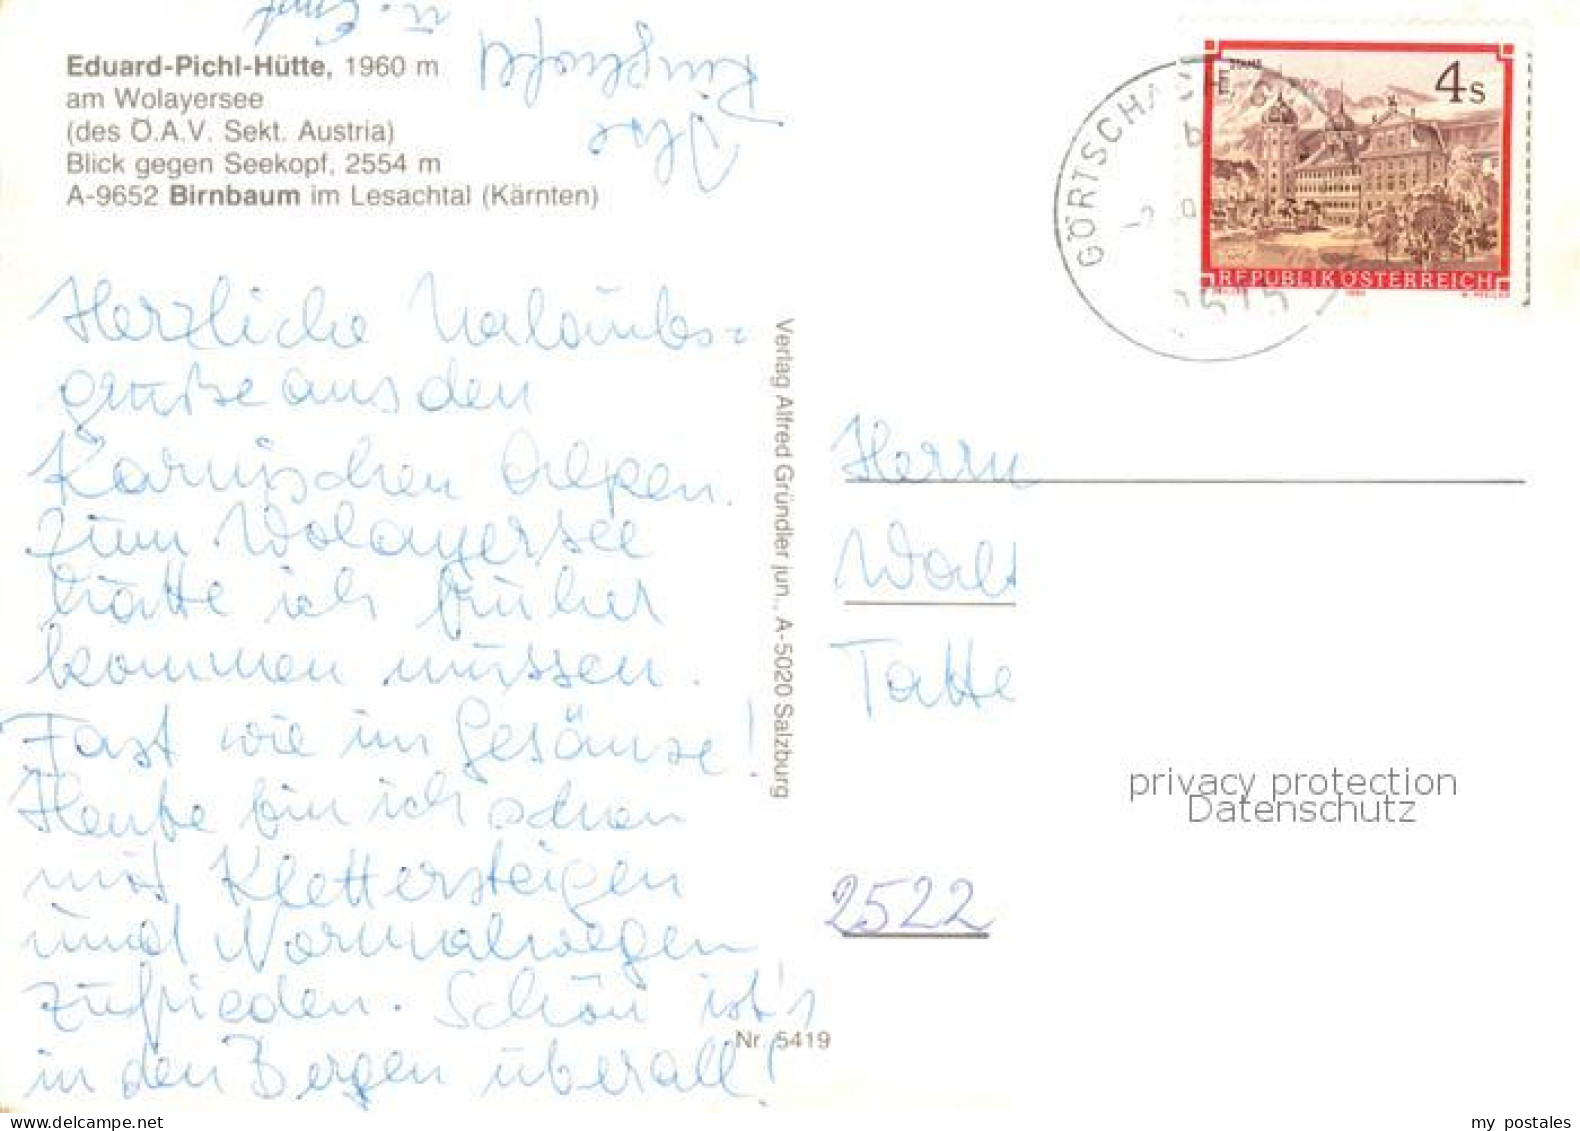 Eduard-Pichl-Hütte, 1960 m
am Wolayersee
(des Ö.A.V. Sekt. Austria)
Blick gegen Seekopf, 2554 m
A-9652 Birnbaum im Lesachtal (Kärnten)
Herzliche Urlaubs=
grüße aus den
Karnischen Alpen.
Zum Wolayersee
hätte ich früher
kommen müssen.
Fast wie im Gesäuse!
Heute bin ich schon
mit Klettersteigen
und Normalwegen
zufrieden. Schön ist's
in den Bergen überall!
Ihre
u.
Verlag Alfred Gründler jun., A-5020 Salzburg
Nr. 5419
GÖRTSCHACH
STAMS
4 S
REPUBLIK ÖSTERREICH
Herrn
Walt
Tatte
2522
privacy protection
Datenschutz
my postales